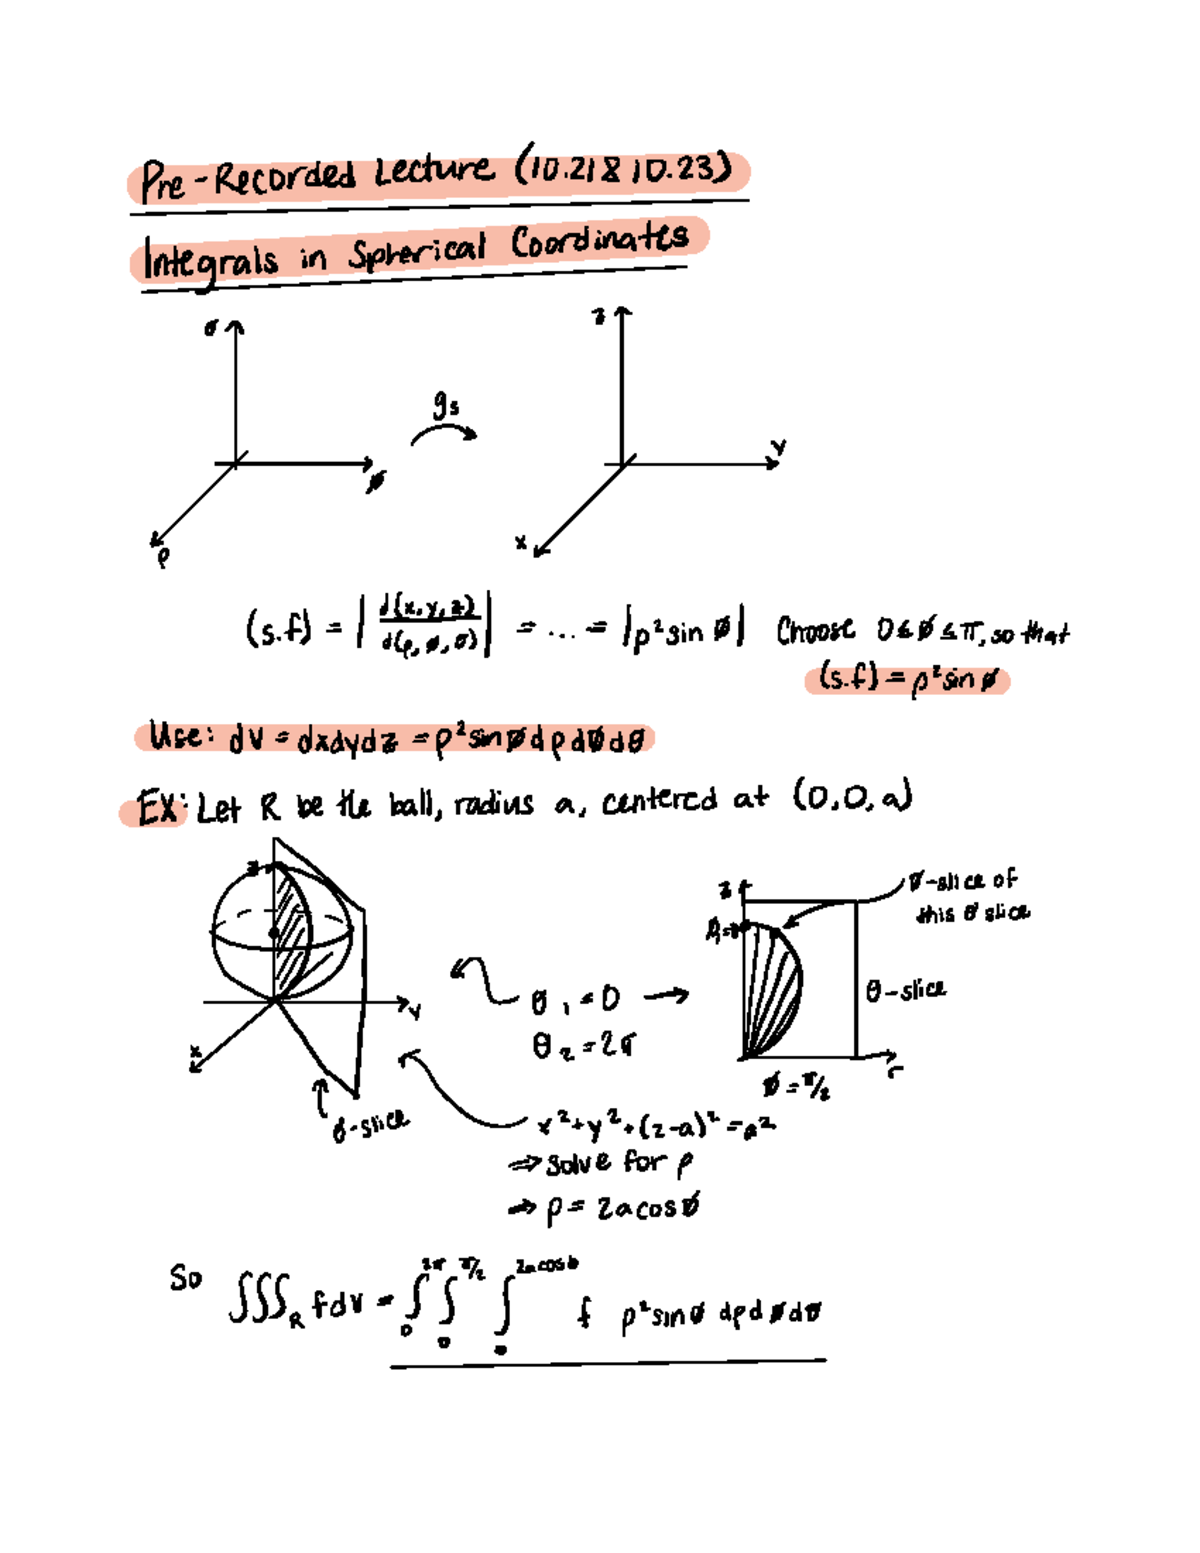 Pre-Recorded Lecture (10.21 & 10.23)
Integrals in Spherical Coordinates
θ z
gs
y
ϕ
x
ρ
(s.f) = | d(x,y,z) / d(ρ,ϕ,θ) | = ... = |ρ²sin ϕ| Choose 0≤ϕ≤π, so that
(s.f) = ρ²sin ϕ
Use: dV = dxdydz = ρ²sinϕdρdϕdθ
EX: Let R be the ball, radius a, centered at (0,0,a)
z
z ϕ-slice of
this θ slice
θ₁ = 0 → θ-slice
y
θ₂ = 2π
x r
ϕ = π/2
θ-slice
x²+y²+(z-a)² = a²
⇒ solve for ρ
→ ρ = 2acosϕ
So ∫∫∫_R fdV = ∫_0^2π ∫_0^π/2 ∫_0^2acosϕ f ρ²sinϕ dρdϕdθ